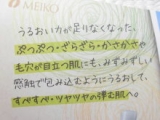 MEIKO
うるおい力が足りなくなった、
ぷつぷつ・ざらざら・かさかさや
毛穴が目立つ肌にも、みずみずしい
感触で包み込むようにうるおして、
すべすべ・ツヤツヤの弾む肌へ。